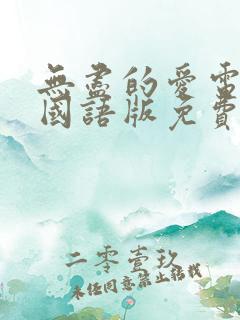 無盡的愛電
國語版免費
二零壹玖
未经同意禁止转载